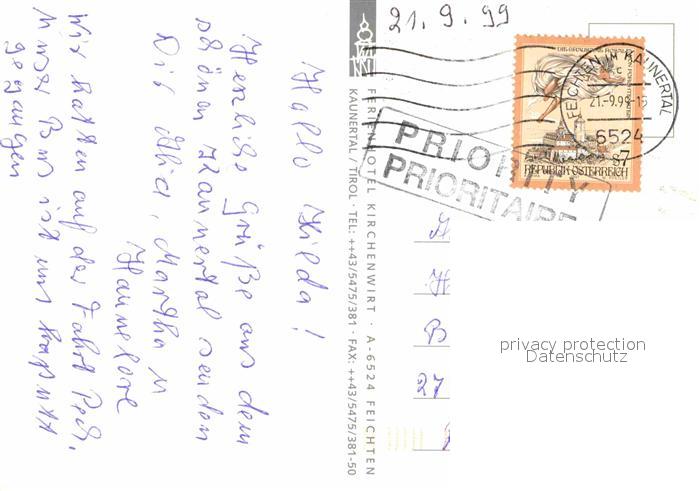 21. 9. 99
Hallo Hilda!
Herzliche Grüße aus dem
schönen Kaunertal senden
Dir
Martha u
Hannelore
Wir hatten auf der Fahrt Pech.
Unser Bus ist uns kaputt
gegangen
FERIENHOTEL KIRCHENWIRT · A-6524 FEICHTEN
KAUNERTAL / TIROL · TEL: ++43/5475/381 · FAX: ++43/5475/381-50
FEICHTEN IM KAUNERTAL
21.-9.99-15
6524
s7
REPUBLIK ÖSTERREICH
PRIORITY
PRIORITAIRE
H
B
27
privacy protection
Datenschutz